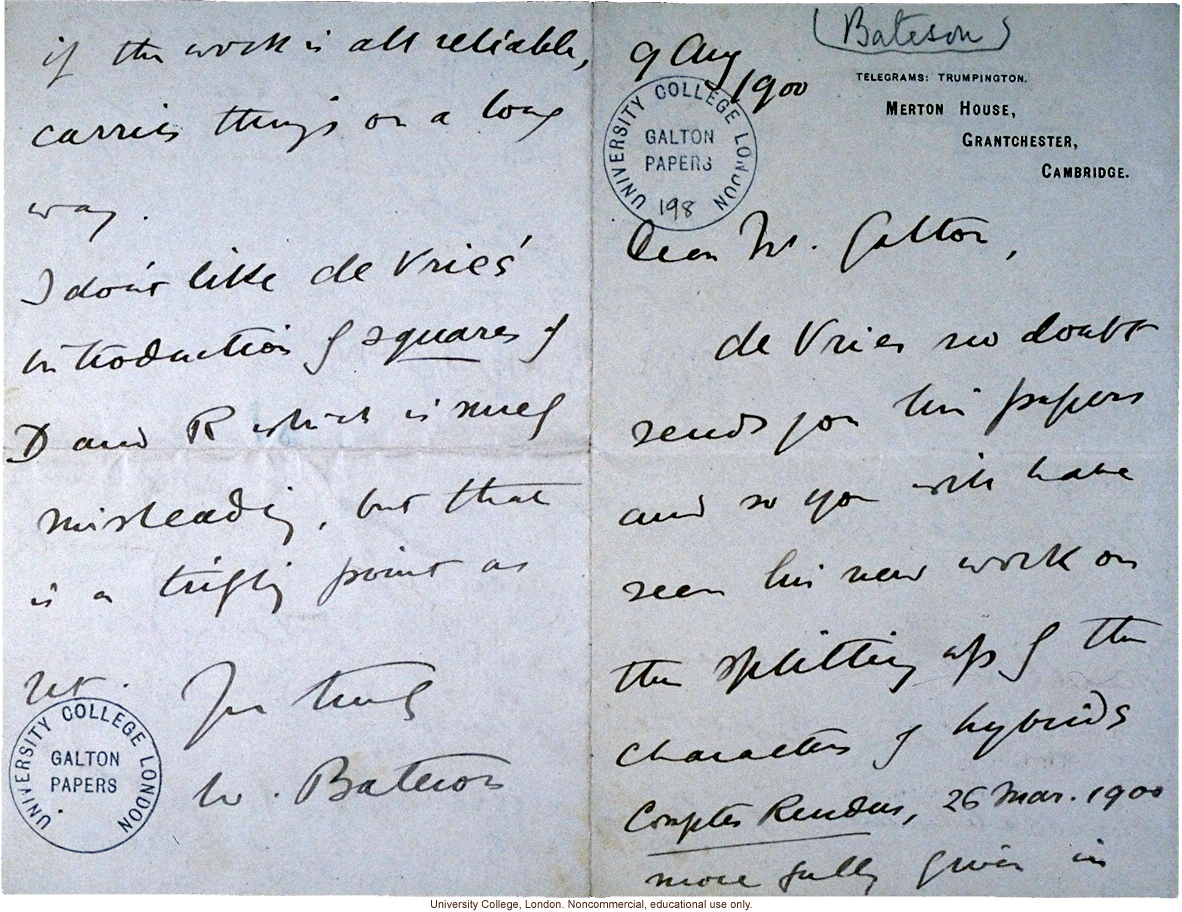 (Bateson)
9 Aug
1900
TELEGRAMS: TRUMPINGTON.
MERTON HOUSE,
GRANTCHESTER,
CAMBRIDGE.
UNIVERSITY COLLEGE LONDON
GALTON
PAPERS
198
Dear Mr. Galton,
de Vries no doubt
sends you his papers
and so you will have
seen his new work on
the splitting up of the
characters of hybrids
Comptes Rendus, 26 Mar. 1900
more fully given in
if the work is all reliable,
carries things on a long
way.
I don't like de Vries'
introduction of squares of
D and R which is
misleading, but that
is a trifling point as
yet. Yrs truly
W. Bateson
UNIVERSITY COLLEGE LONDON
GALTON
PAPERS
University College, London. Noncommercial, educational use only.